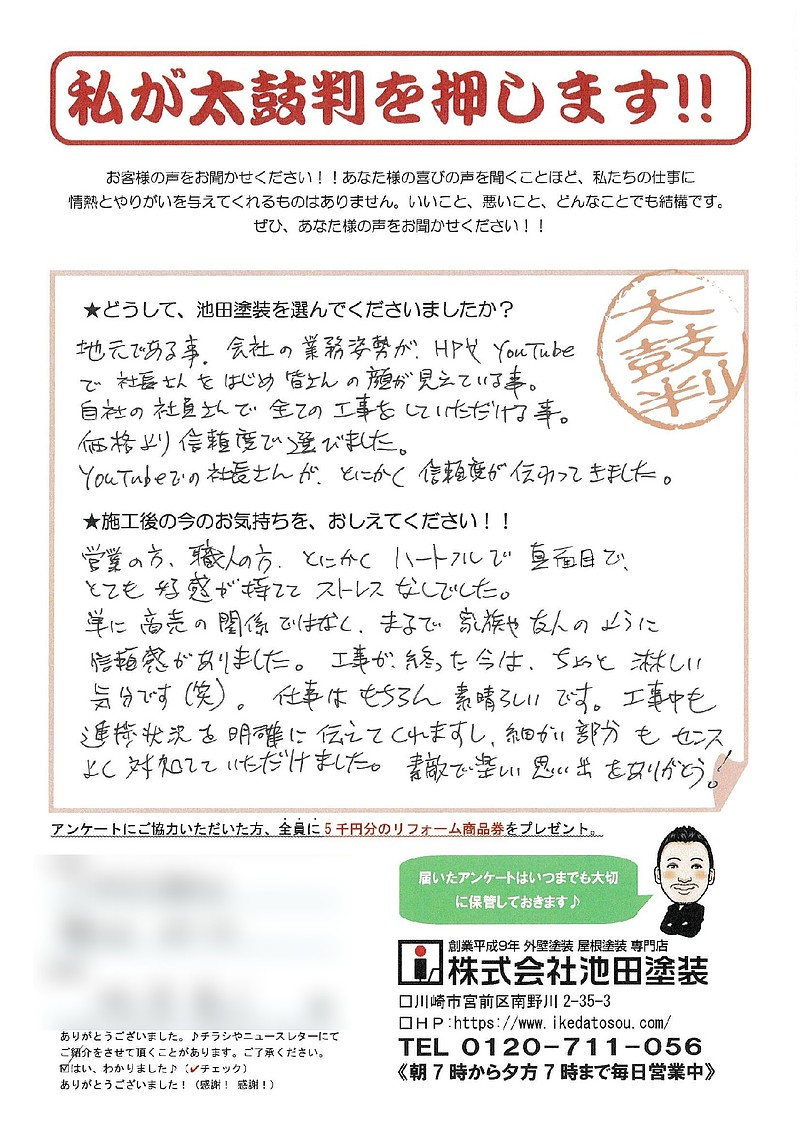 私が太鼓判を押します!!
お客様の声をお聞かせください！！あなた様の喜びの声を聞くことほど、私たちの仕事に
情熱とやりがいを与えてくれるものはありません。いいこと、悪いこと、どんなことでも結構です。
ぜひ、あなた様の声をお聞かせください！！
太鼓判
★どうして、池田塗装を選んでくださいましたか？
地元である事。会社の業務姿勢が、HPや YouTube
で 社長さんをはじめ 皆さんの顔が見えている事。
自社の社員さんで 全ての工事をしていただける事。
価格より信頼度で選びました。
YouTubeでの社長さんが、とにかく 信頼度が伝わってきました。
★施工後の今のお気持ちを、おしえてください！！
営業の方、職人の方、とにかく ハートフルで 真面目で、
とても 好感が持てて ストレスなしでした。
単に商売の関係ではなく、まるで 家族や友人のように
信頼感がありました。工事が終った今は、ちょっと 淋しい
気分です(笑)。仕事はもちろん 素晴らしいです。工事中も
進捗状況を明確に伝えてくれますし、細かい部分も センス
よく対処していただけました。素敵で楽しい思い出をありがとう！
アンケートにご協力いただいた方、全員に5千円分のリフォーム商品券をプレゼント。
届いたアンケートはいつまでも大切
に保管しておきます♪
創業平成9年 外壁塗装 屋根塗装 専門店
株式会社池田塗装
□川崎市宮前区南野川 2-35-3
□ＨＰ:https://www.ikedatosou.com/
TEL 0120-711-056
《朝７時から夕方７時まで毎日営業中》
ありがとうございました。♪チラシやニュースレターにて
ご紹介をさせて頂くことがあります。ご了承ください。
☑はい、わかりました♪（✓チェック）
ありがとうございました！（感謝！感謝！）